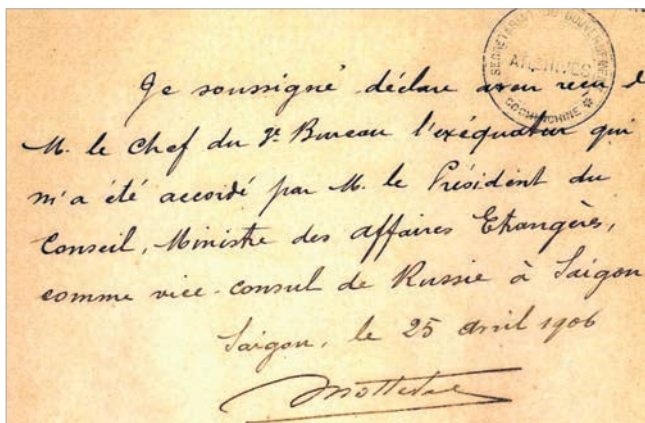 SECRÉTARIAT DU GOUVERNEMENT
ARCHIVES
COCHINCHINE
Je soussigné déclare avoir reçu de
M. le Chef du Bureau l'exéquatur qui
m'a été accordé par M. le Président du
Conseil, Ministre des affaires Etrangères,
comme vice-consul de Russie à Saïgon
Saïgon, le 25 avril 1906